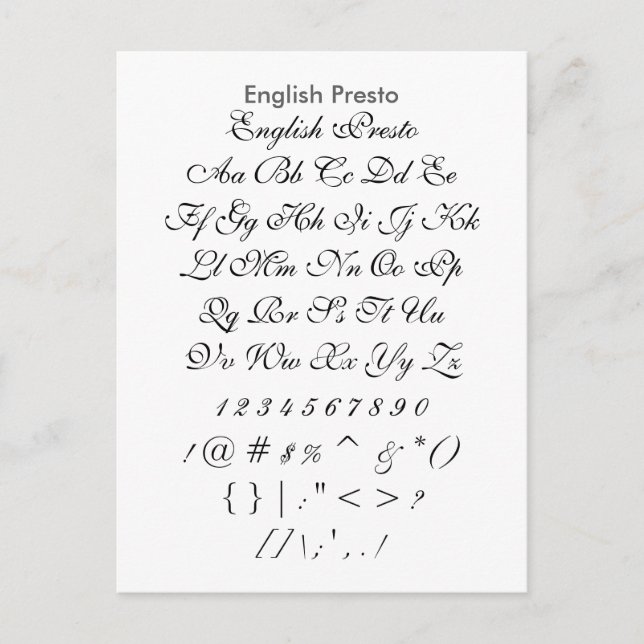 English Presto
English Presto
Aa Bb Cc Dd Ee
Ff Gg Hh Ii Jj Kk
Ll Mm Nn Oo Pp
Qq Rr Ss Tt Uu
Vv Ww Xx Yy Zz
1 2 3 4 5 6 7 8 9 0
! @ # $ % ^ & * ( )
{ } | : " < > ?
[ ] \ ; ' , . /